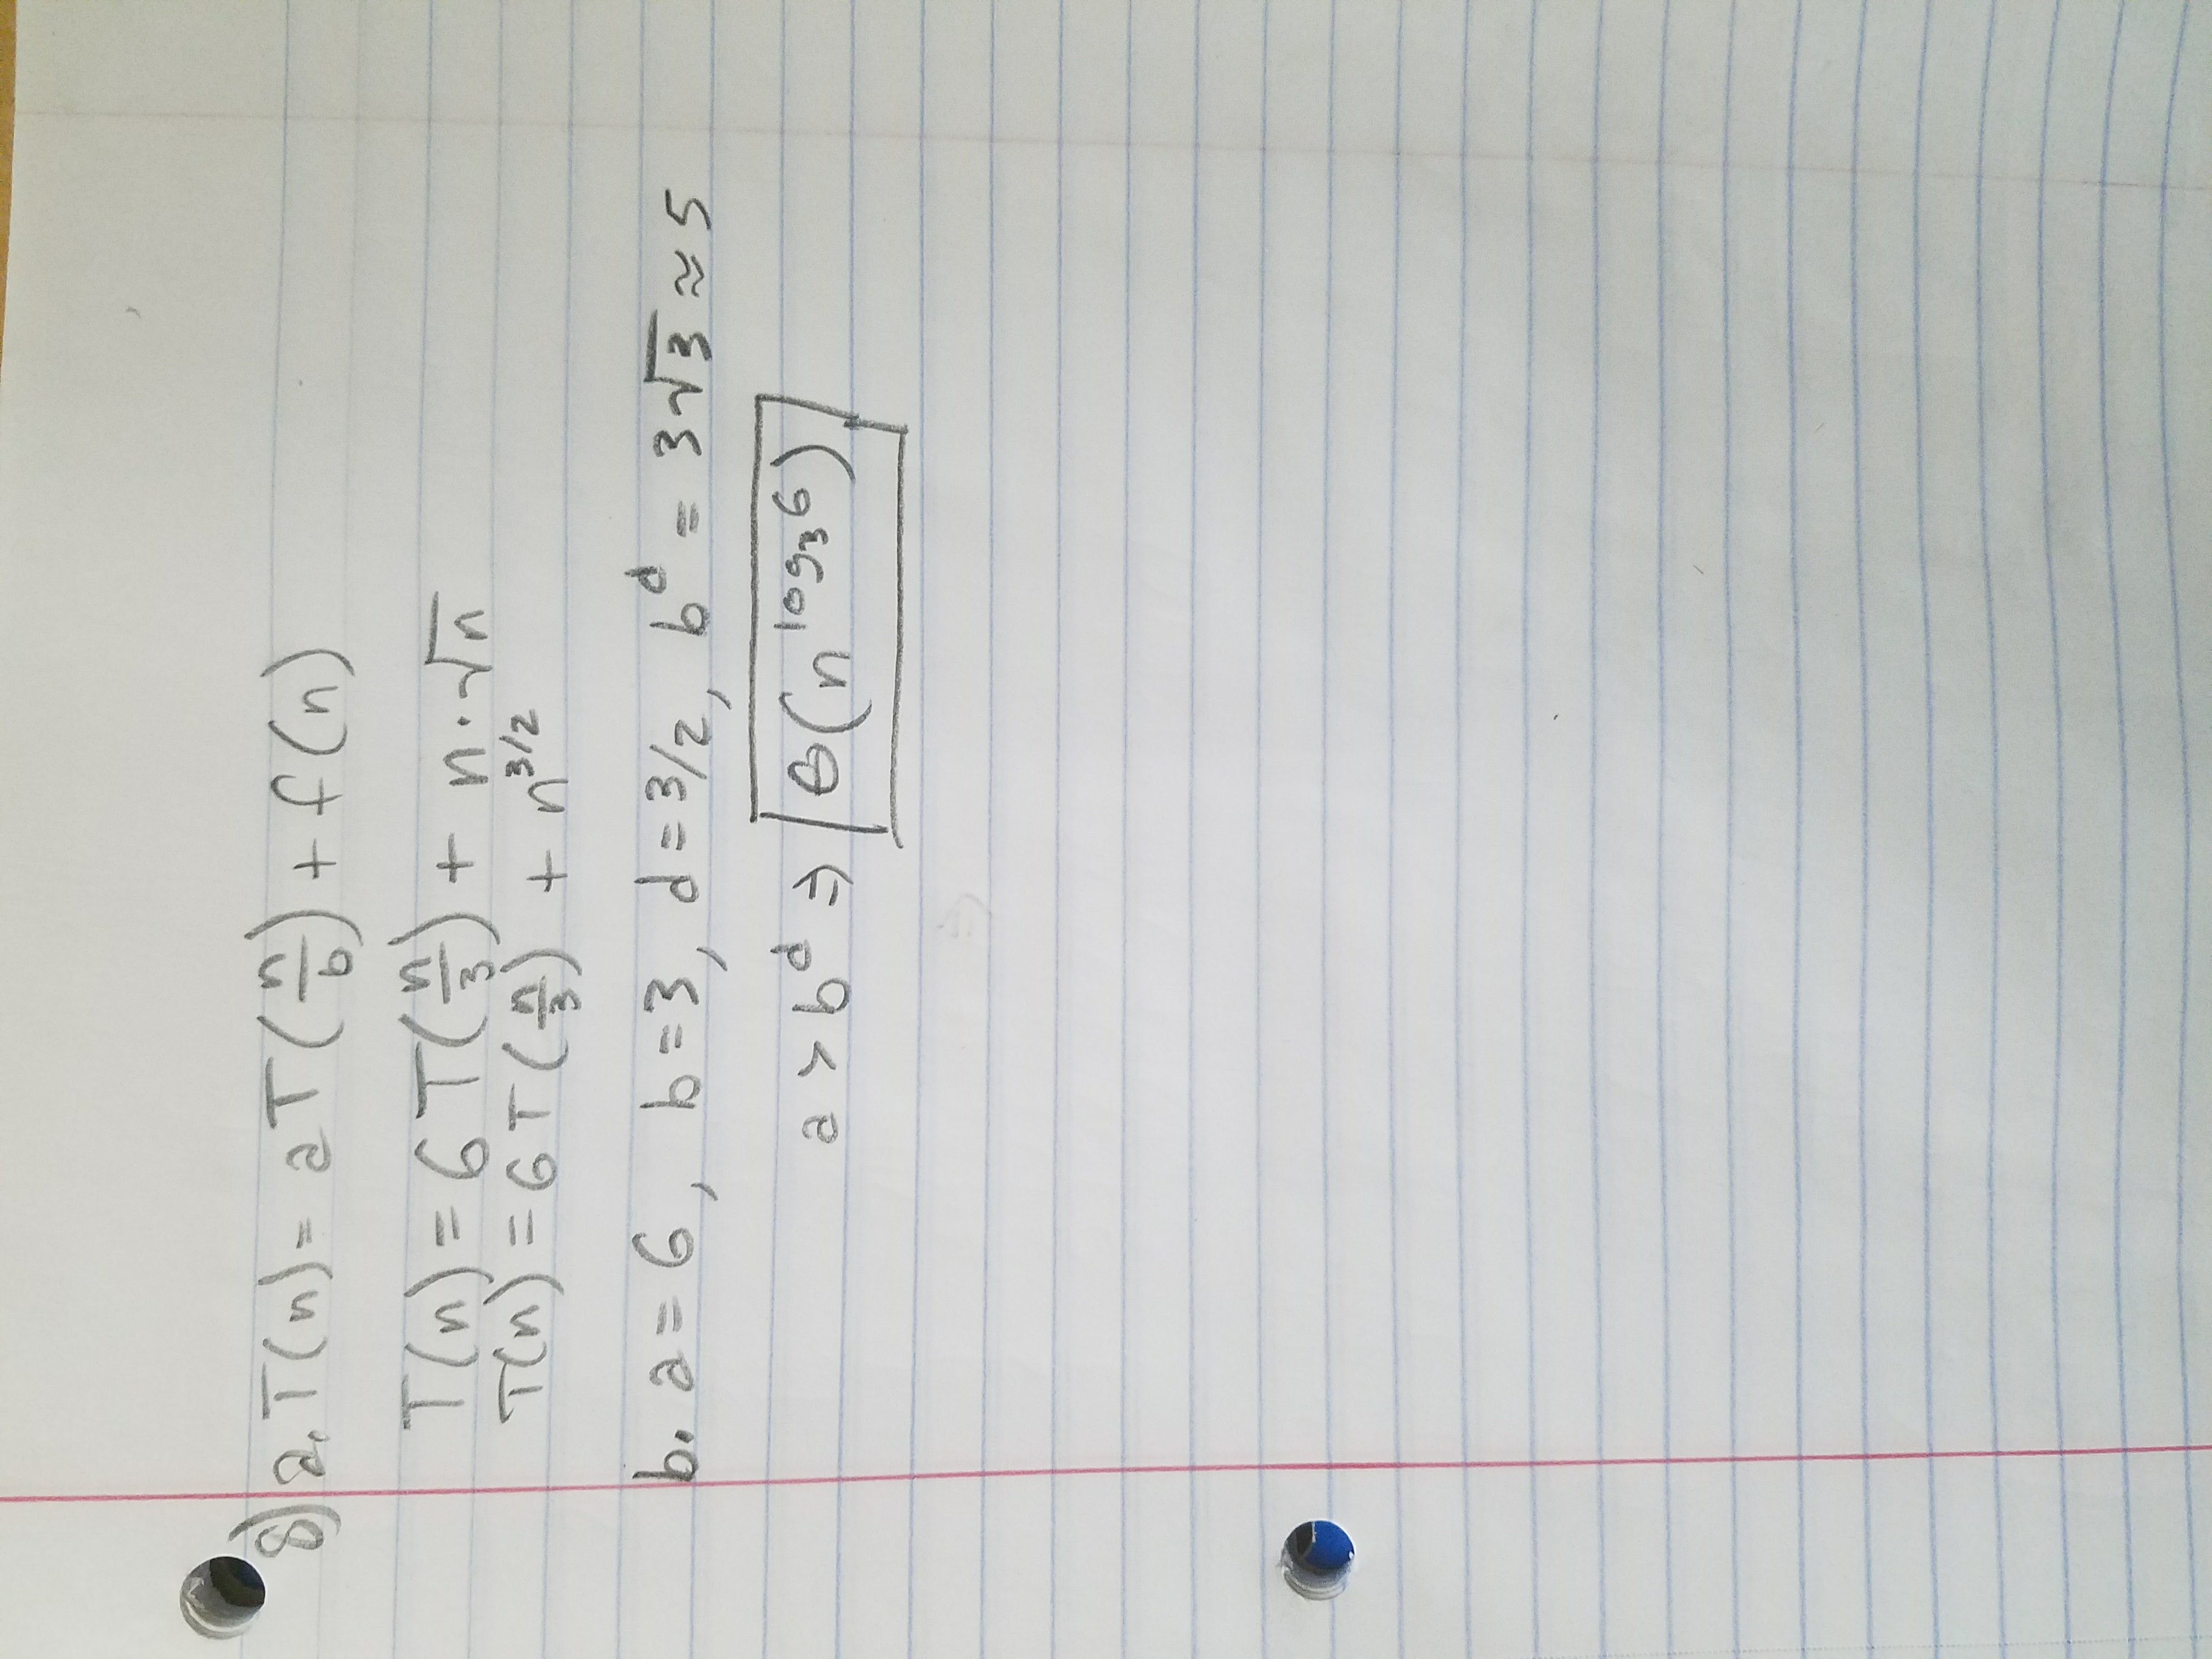 8) a. T(n) = aT(n/b) + f(n)
T(n) = 6T(n/3) + n·√n
T(n) = 6T(n/3) + n^3/2
b. a = 6, b = 3, d = 3/2, b^d = 3√3 ≈ 5
a > b^d ⇒ Θ(n^log₃6)